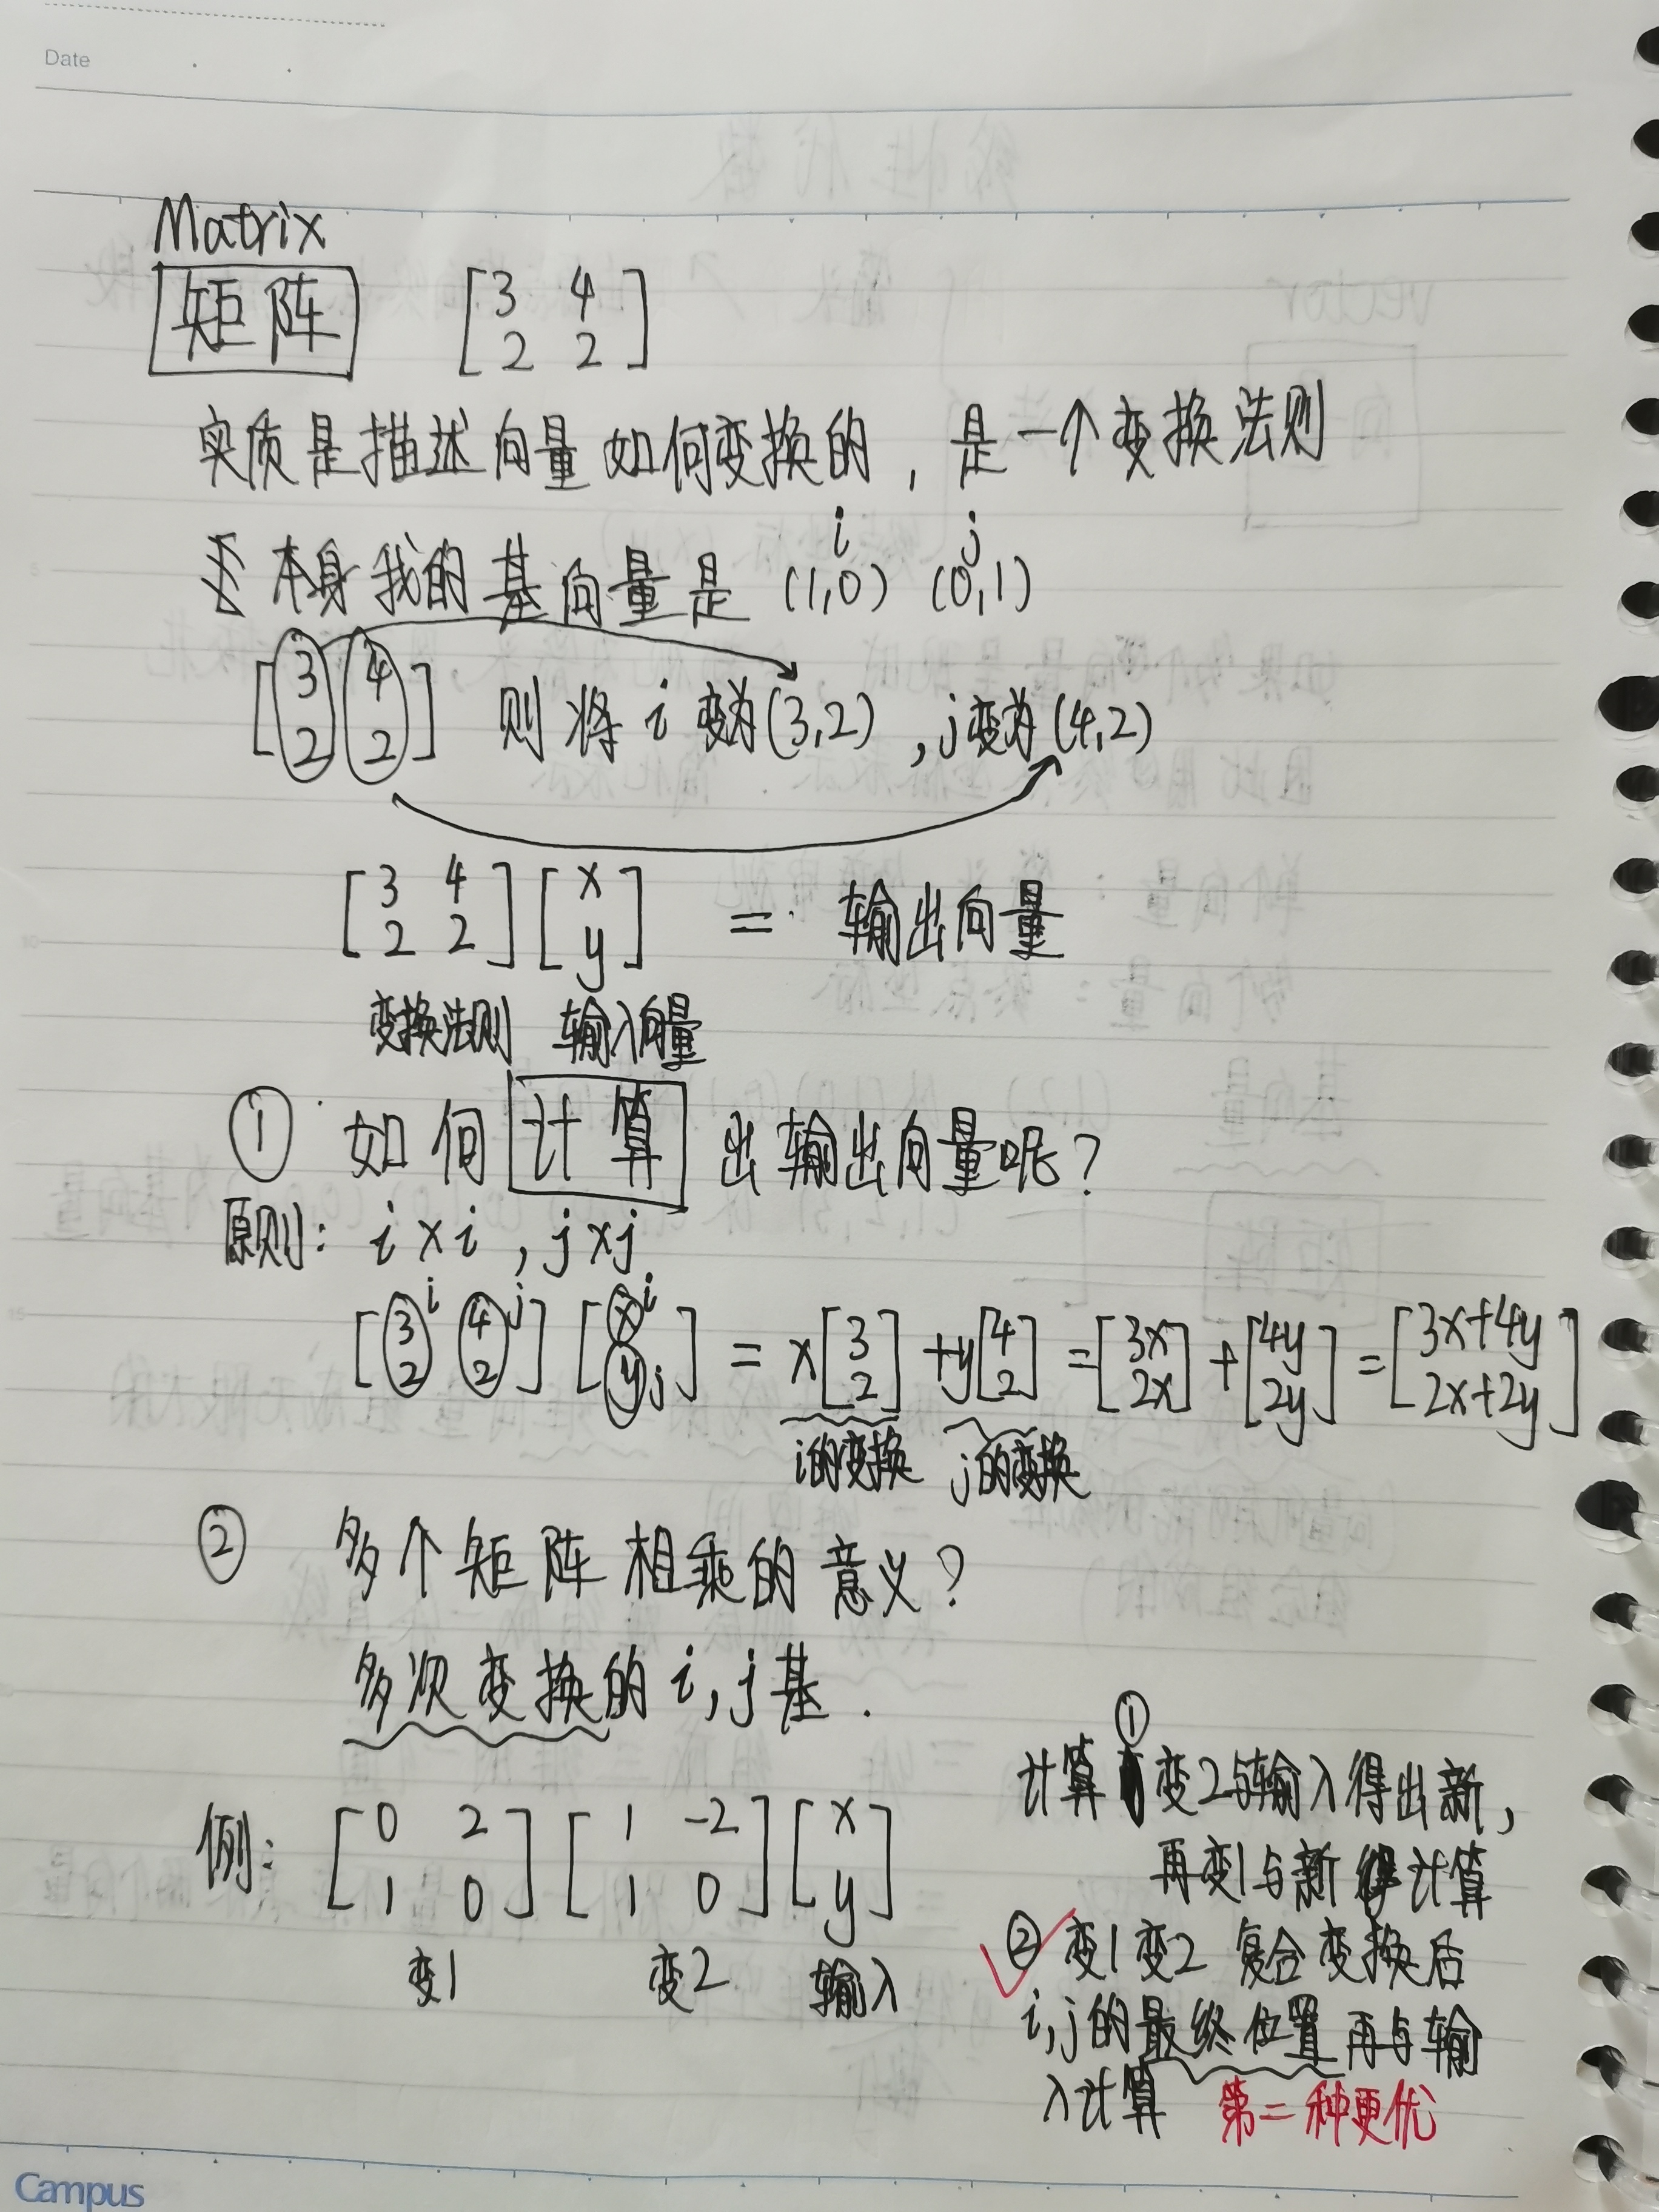 Date
Matrix
矩阵 [3 4
2 2]
实质是描述向量如何变换的，是一个变换法则
i j
本身我的基向量是 (1,0) (0,1)
[3 4
2 2] 则将 i 变为(3,2)，j变为(4,2)
[3 4
2 2] [x
y] = 输出向量
变换法则 输入向量
① 如何计算出输出向量呢？
原则：i×i，j×j
[3 i 4 j
2 2] [x i
y j] = x[3
2] +y[4
2] =[3x
2x] +[4y
2y] =[3x+4y
2x+2y]
i的变换 j的变换
② 多个矩阵相乘的意义？
多次变换的 i,j基.
例：[0 2
1 0] [1 -2
1 0] [x
y]
变1 变2 输入
①
计算变2与输入得出新，
再变1与新计算
② 变1变2 复合变换后
i,j的最终位置再与输
入计算 第二种更优
Campus